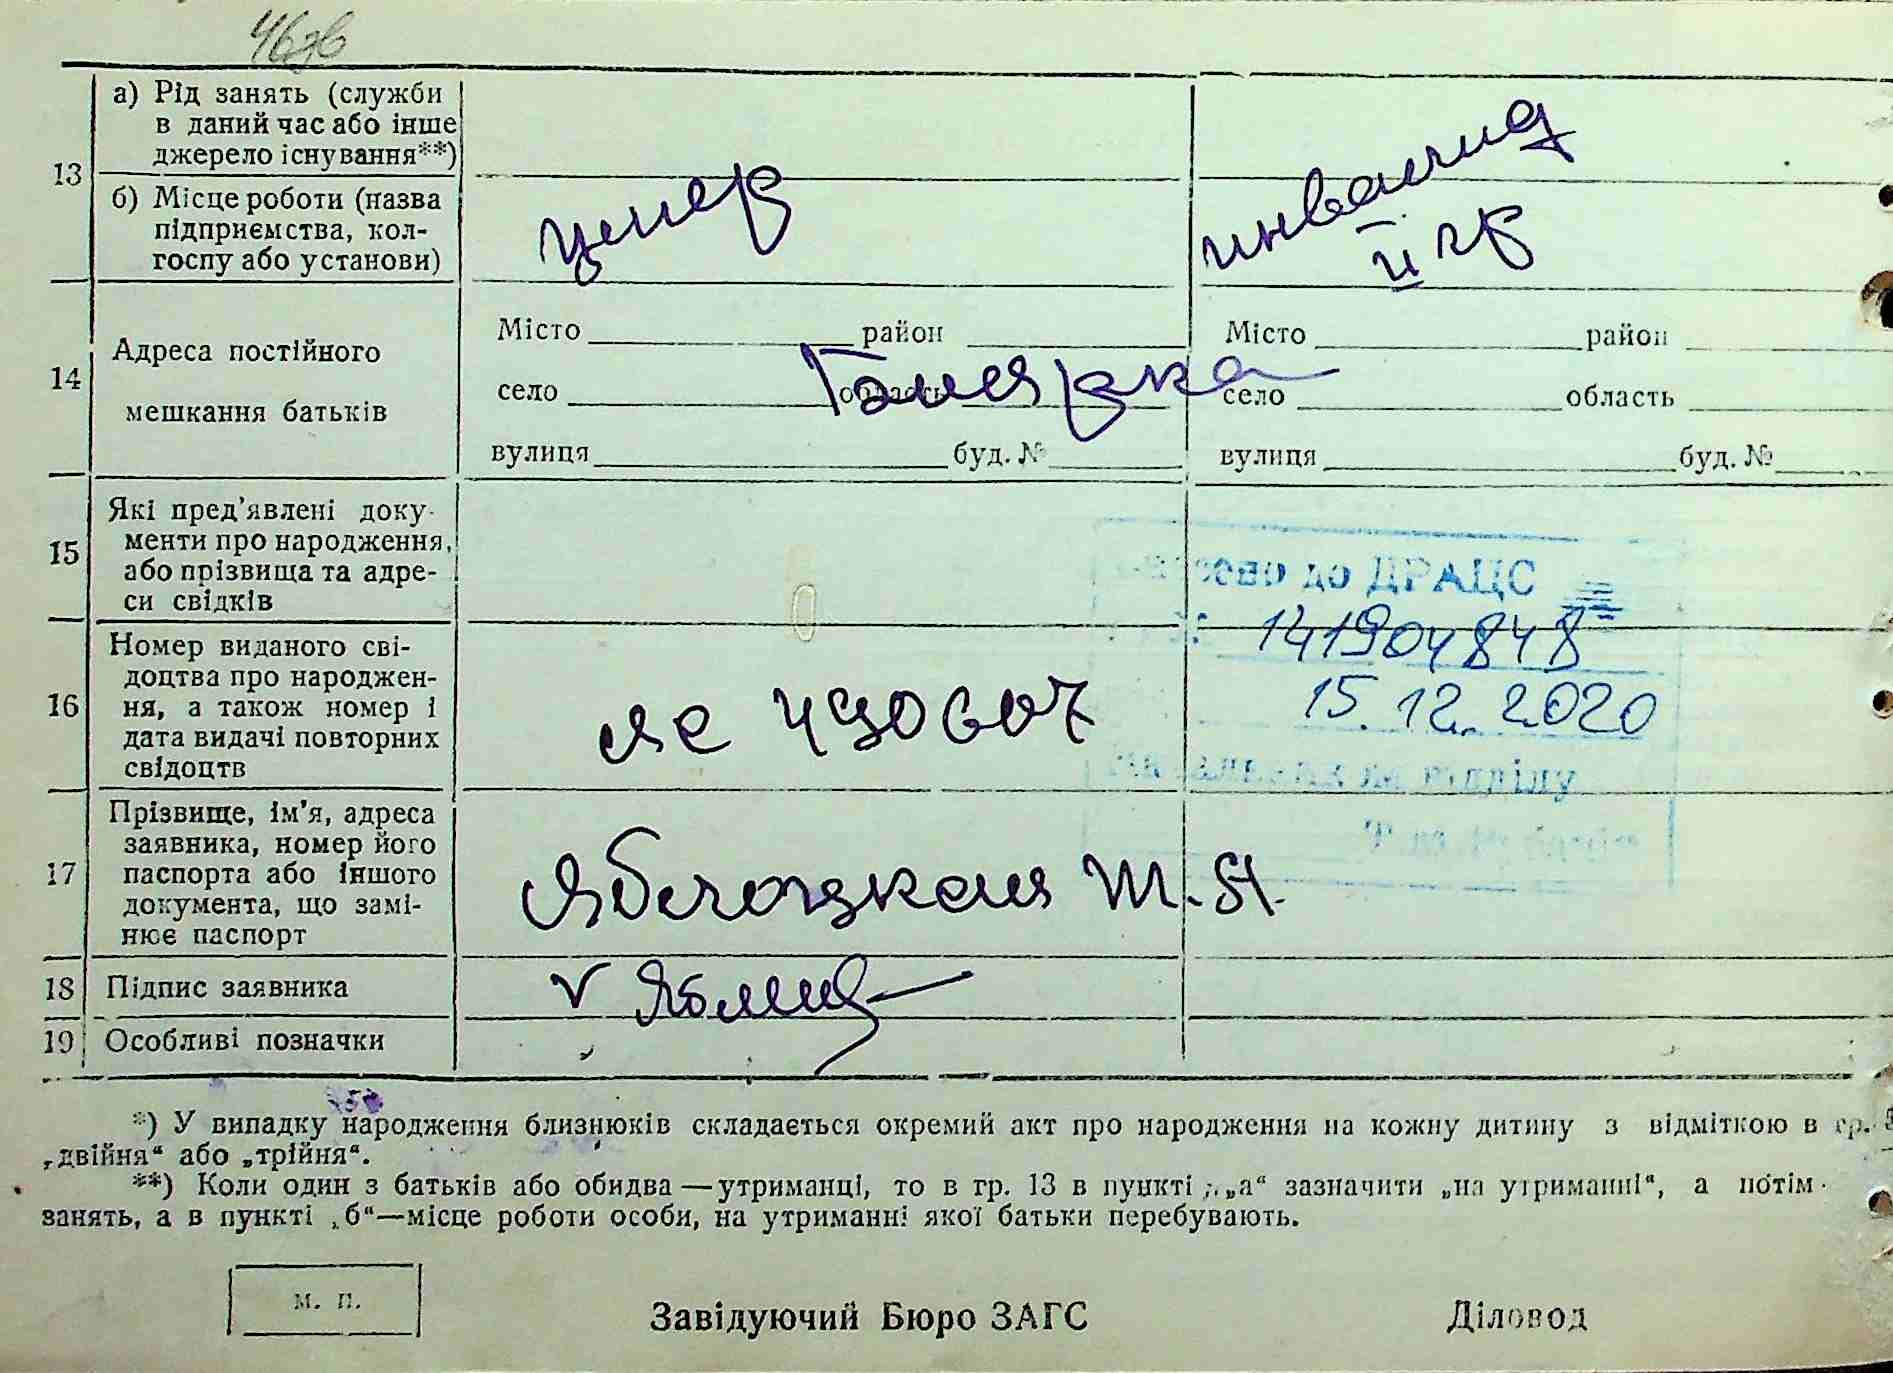 13
а) Рід занять (служби
в даний час або інше
джерело існування**)
б) Місце роботи (назва
підприємства, кол-
госпу або установи)
умер
инвалид
II гр
14
Адреса постійного
мешкання батьків
Місто район
село область
вулиця буд. №
Місто район
село область
вулиця буд. №
15
Які пред’явлені доку-
менти про народження,
або прізвища та адре-
си свідків
до ДРАЦС
141904848
15.12.2020
відділу
16
Номер виданого сві-
доцтва про народжен-
ня, а також номер і
дата видачі повторних
свідоцтв
490607
17
Прізвище, ім’я, адреса
заявника, номер його
паспорта або іншого
документа, що замі-
нює паспорт
Яблоцкая М. Я.
18
Підпис заявника
19
Особливі позначки
*) У випадку народження близнюків складається окремий акт про народження на кожну дитину з відміткою в гр.
„двійня“ або „трійня“.
**) Коли один з батьків або обидва — утриманці, то в гр. 13 в пункті „а“ зазначити „на утриманні“, а потім
занять, а в пункті „б“—місце роботи особи, на утриманні якої батьки перебувають.
м. п.
Завідуючий Бюро ЗАГС
Діловод